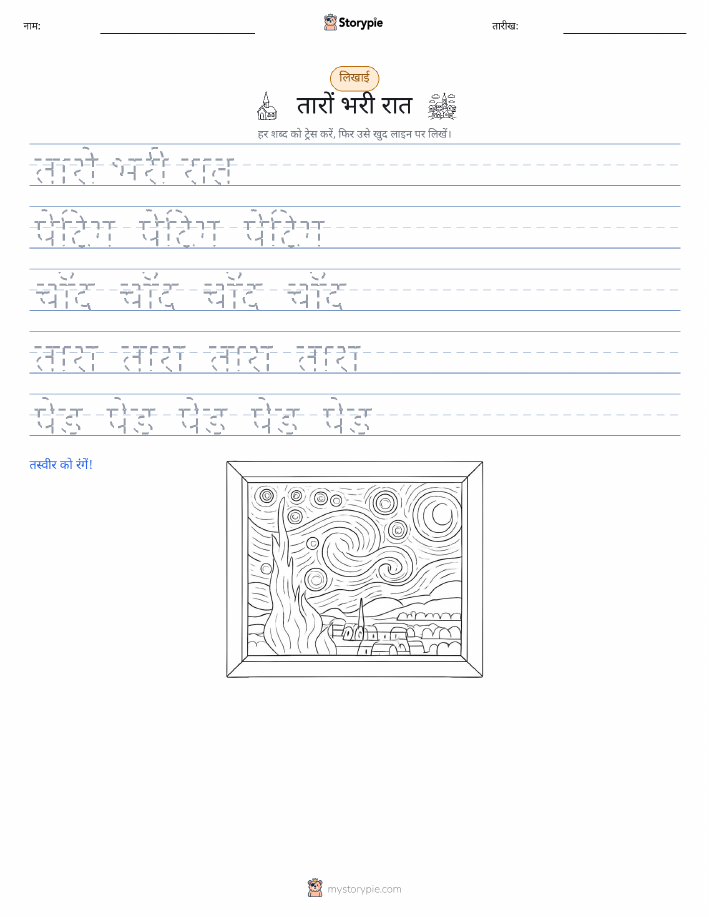 नाम:
Storypie
तारीख:
लिखाई
तारों भरी रात
हर शब्द को ट्रेस करें, फिर उसे खुद लाइन पर लिखें।
तारों भरी रात
पेंटिंग पेंटिंग पेंटिंग
चाँद चाँद चाँद चाँद
तारा तारा तारा तारा
पेड़ पेड़ पेड़ पेड़ पेड़
तस्वीर को रंगें!
mystorypie.com